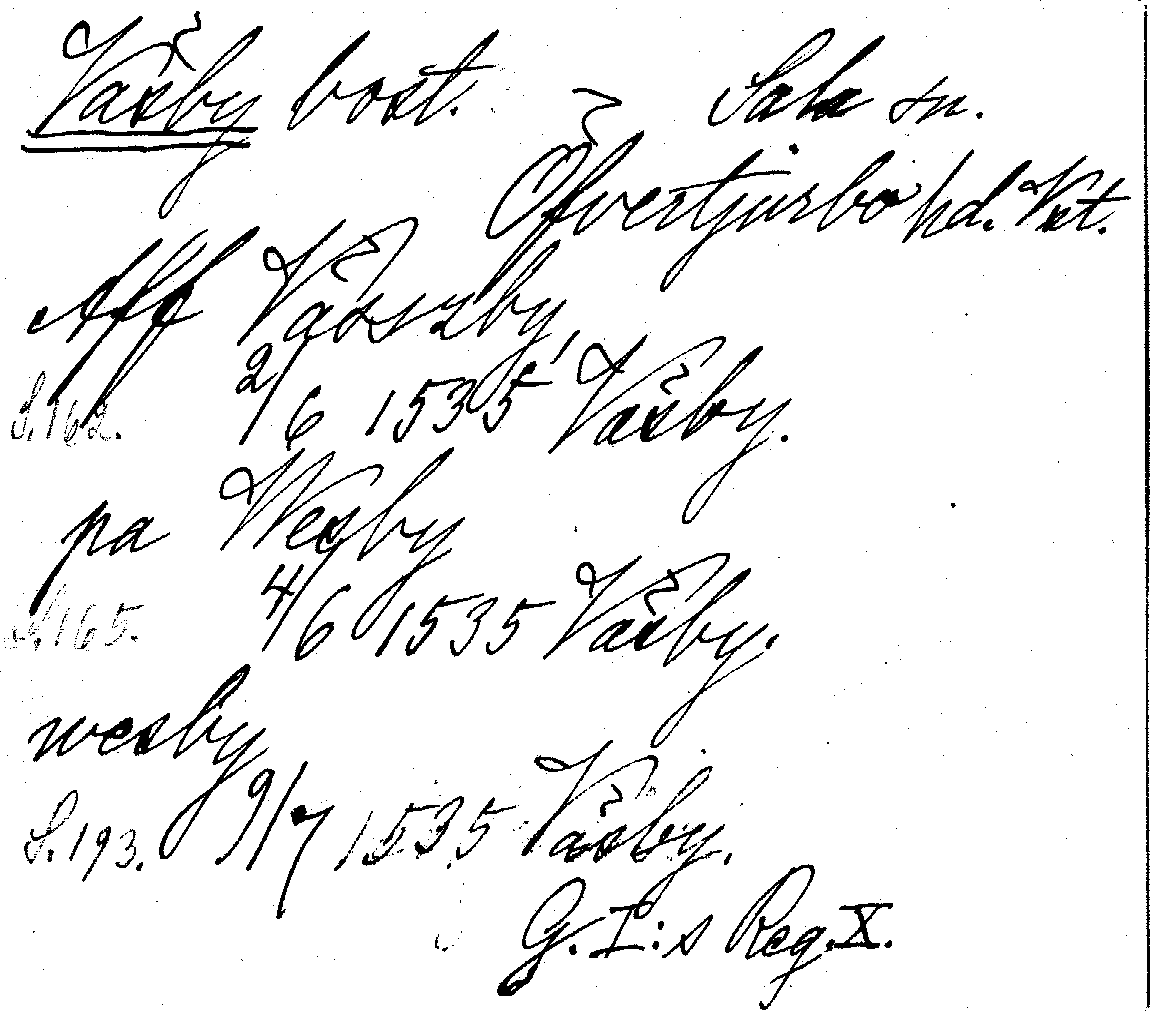 Väsby bost. Sala sn.
Öfvertjurbo hd. Vst.
Aff Vädszby,
S. 162. 2/6 1535 Väsby.
pa Wesby
S. 165. 4/6 1535 Väsby.
wesby
S. 193. 9/7 1535 Väsby.
G. I:s Reg. X.